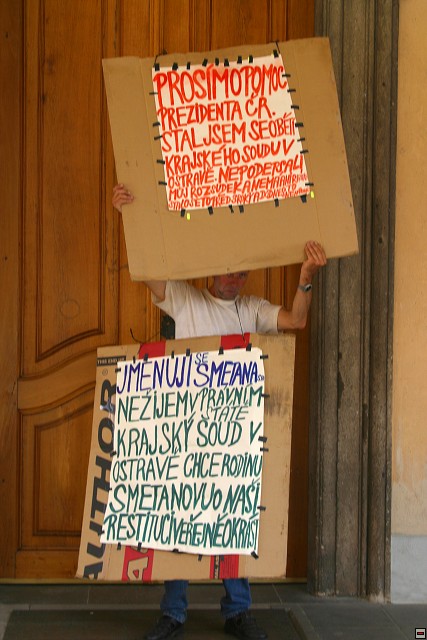 PROSÍM O POMOC
PREZIDENTA ČR.
STAL JSEM SE OBĚTÍ
KRAJSKÉHO SOUDU V
OSTRAVĚ. NEPODEPSALI
MŮJ ROZSUDEK A NEMÁM
JMENUJI SE SMETANA
NEŽIJEM V PRÁVNÍM
STÁTĚ
KRAJSKÝ SOUD V
OSTRAVĚ CHCE RODINU
SMETANOVU O NAŠÍ
RESTITUCI VEŘEJNĚ OKRÁST
AUTHOR